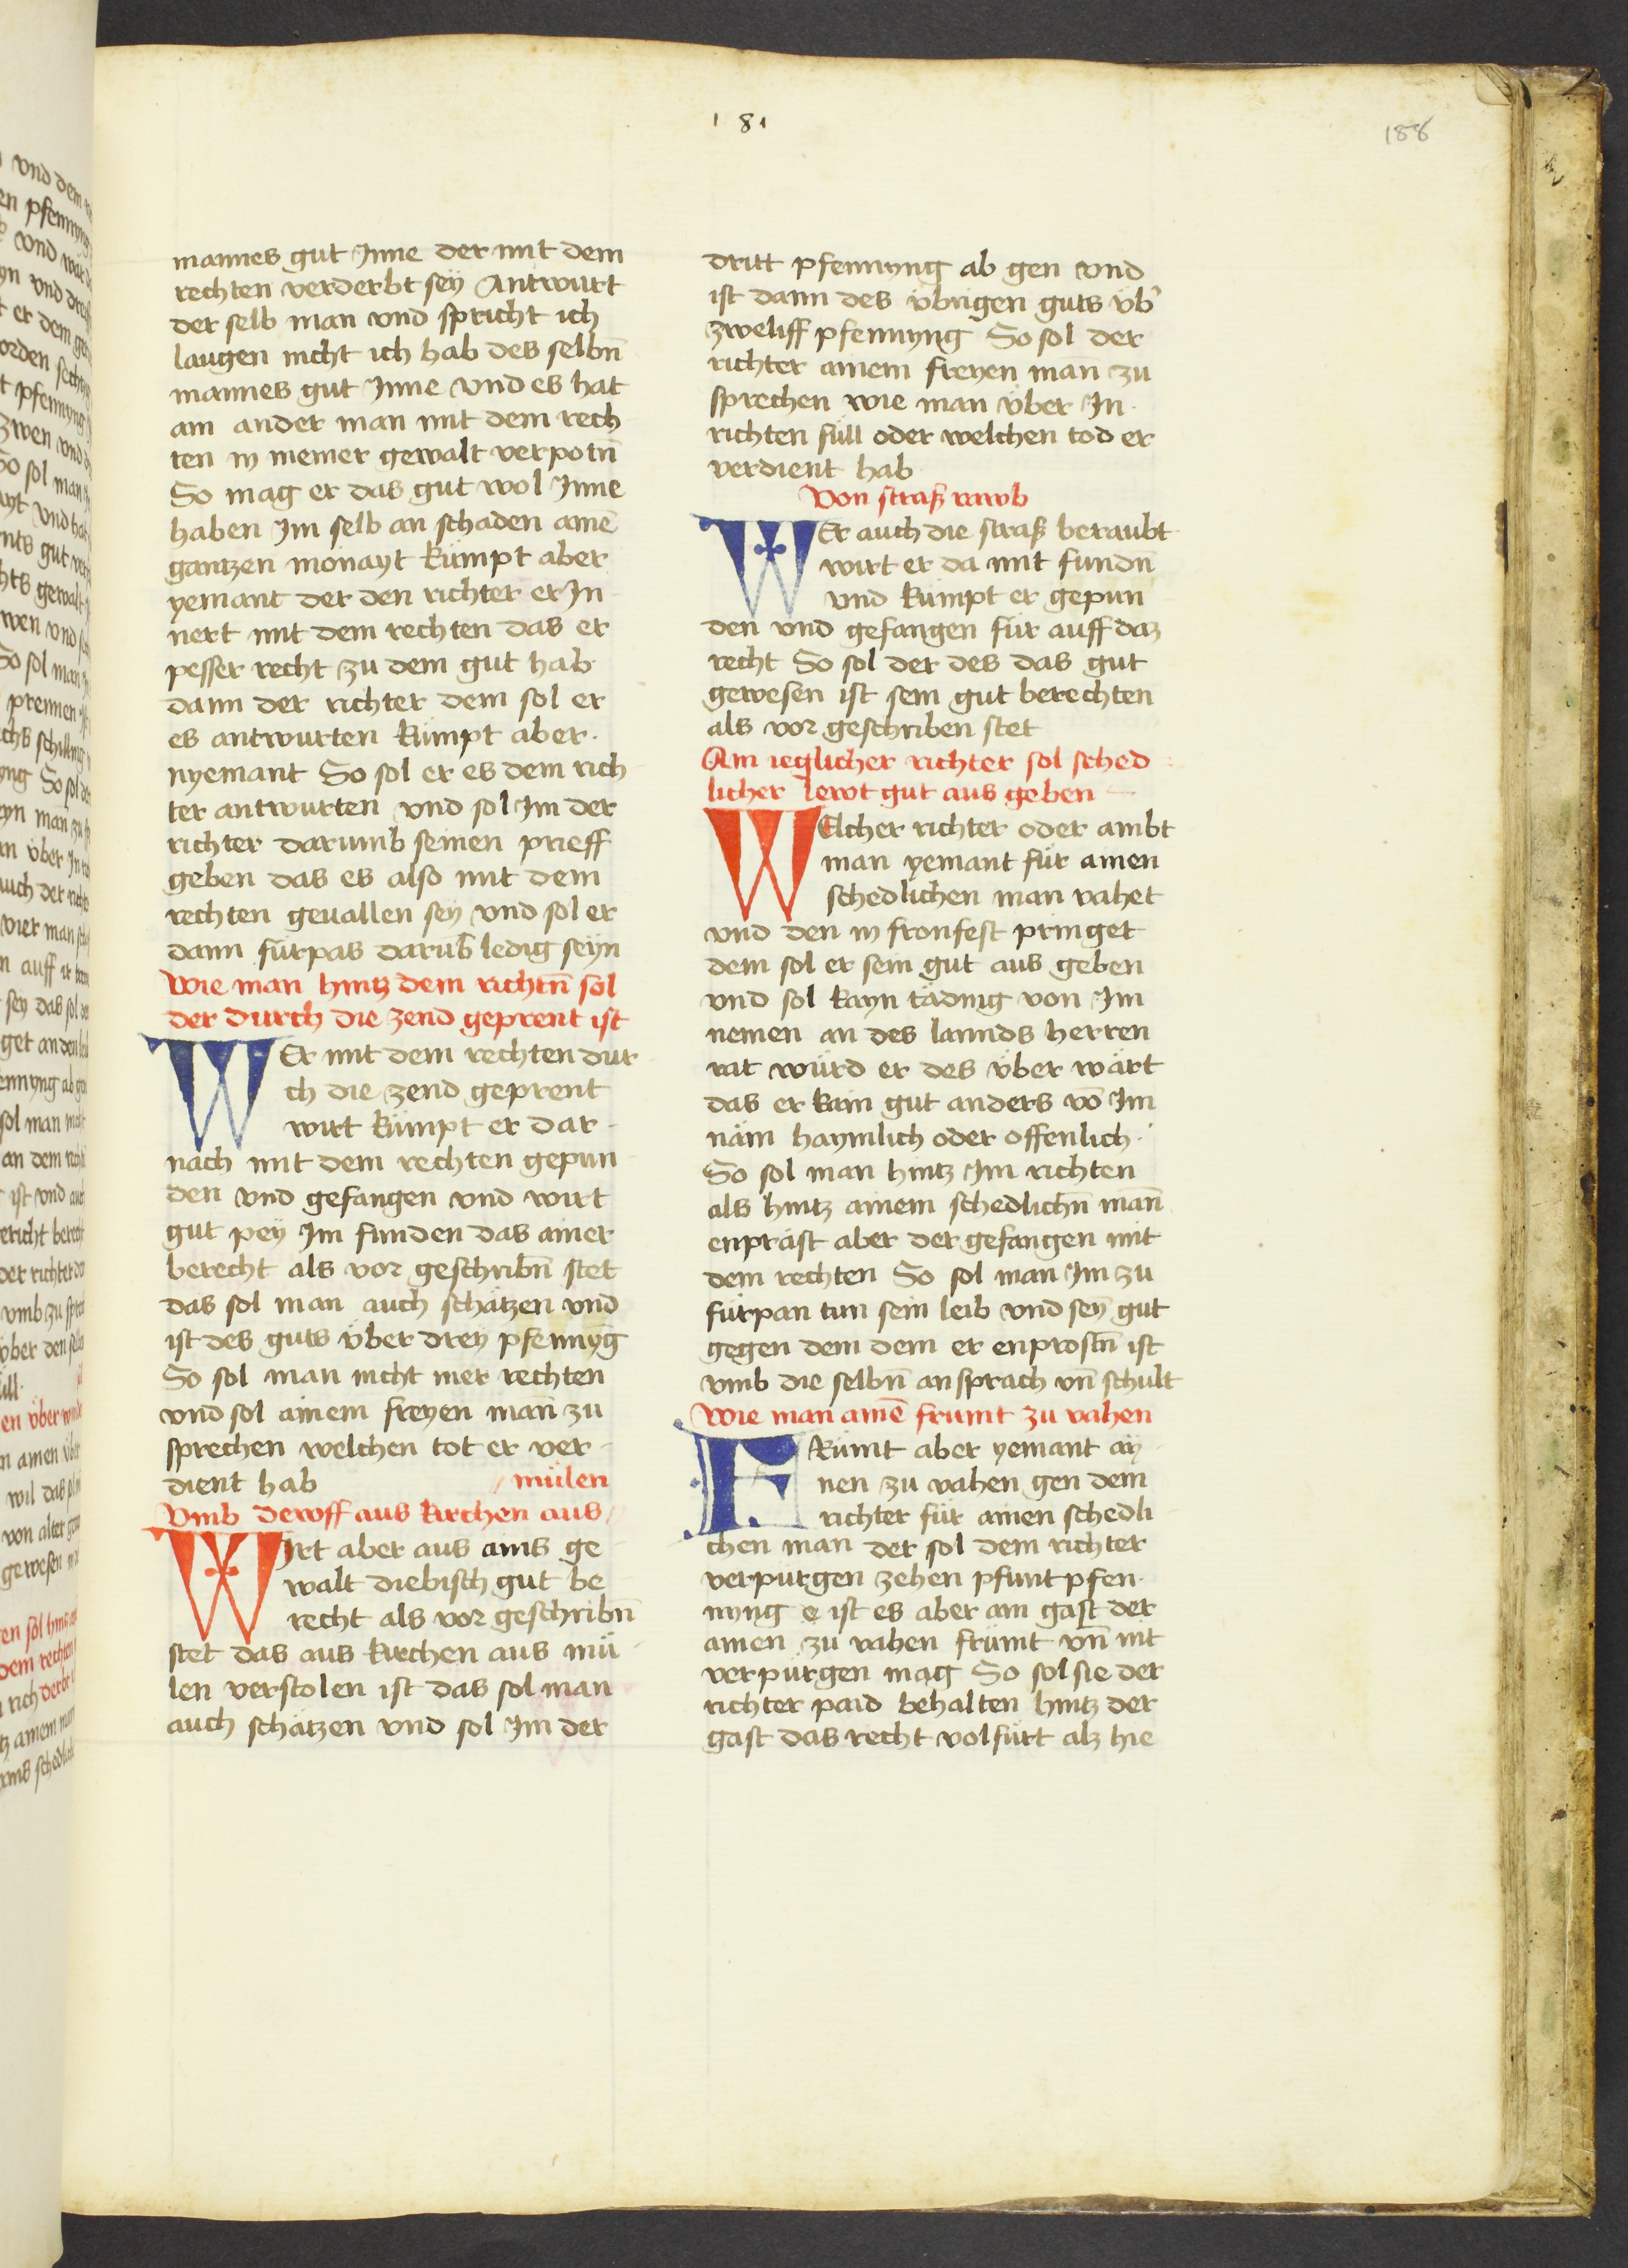 181
188
mannes gut Inne der mit dem
rechten verderbt seÿ Antwurt
der selb man vnd spricht ich
laugen nicht ich hab des selbn̄
mannes gut Inne vnd es hat
ain ander man mit dem rech
ten in meiner gewalt verpotn̄
So mag er das gut wol Inne
haben Im selb an schaden ainē
gantzen monayt kümpt aber
yemant der den richter er In
nert mit dem rechten das er
pesser recht zu dem gut hab
dann der richter dem sol er
es antwurten kümpt aber
nyemant So sol er es dem rich
ter antwurten vnd sol Im der
richter darumb seinen prieff
geben das es also mit dem
rechten geuallen seÿ vnd sol er
dann fürpas darūb ledig seÿn
Wie man hintz dem richtn̄ sol
der durch die zend geprent ist
WEr mit dem rechten dur
ch die zend geprent
wirt kümpt er dar
nach mit dem rechten gepun
den vnd gefangen vnd wirt
gut peÿ Im funden das ainer
berecht als vor geschribn̄ stet
das sol man auch schätzen vnd
ist des guts über dreÿ pfennyg
So sol man nicht mer rechten
vnd sol ainem freyen man zu
sprechen welchen tot er ver
dient hab
mülen
Vmb dewff aus kirchen aus
WIrt aber aus ains ge
walt diebisch gut be
recht als vor geschribn̄
stet das aus kirchen aus mü
len verstolen ist das sol man
auch schätzen vnd sol Im der
dritt pfennyng ab gen vnd
ist dann des übrigen guts üb'
zweliff pfennyng So sol der
richter ainem freyen man zu
sprechen wie man über In
richten süll oder welchen tod er
verdient hab
Von straß rawb
WEr auch die straß beraubt
wirt er da mit fundn̄
vnd kümpt er gepun
den vnd gefangen für auff daz
recht So sol der des das gut
gewesen ist sein gut berechten
als vor geschriben stet
Ain ieglicher richter sol sched
licher lewt gut aus geben
WElcher richter oder ambt
man yemant für ainen
schedlichen man vahet
vnd den in fronfest pringet
dem sol er sein gut aus geben
vnd sol kayn tädnig von Im
nemen an des lannds herren
rat würd er des über wärt
das er kain gut anders vō Im
näm haymlich oder offenlich
So sol man hintz Im richten
als hintz ainem schedlichn̄ man̄
enpräst aber der gefangen mit
dem rechten So sol man Im zu
fürpan tun sein leib vnd seÿ gut
gegen dem dem er enprostn̄ ist
vmb die selbn̄ ansprach vn̄ schult
Wie man ainē frumt zu vahen
FRümt aber yemant aÿ
nen zu vahen gen dem
richter für ainen schedli
chen man der sol dem richter
verpürgen zehen pfunt pfen
nyng e ist es aber ain gast der
ainen zu vahen frümt vn̄ nit
verpürgen mag So sol sie der
richter paid behalten hintz der
gast das recht volfürt alz hie